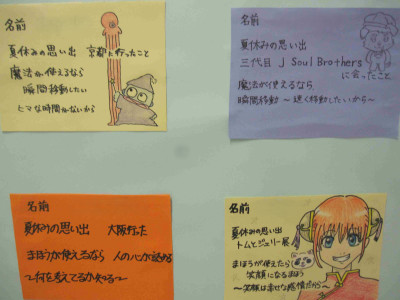 名前
夏休みの思い出 京都に行ったこと
魔法が使えるなら
瞬間移動したい
ヒマな時間がないから
名前
夏休みの思い出
三代目 J Soul Brothers
に会ったこと
魔法が使えるなら
瞬間移動 〜速く移動したいから〜
名前
夏休みの思い出 大阪行った
まほうが使えるなら 人の心が読める
〜何を考えてるか知る〜
名前
夏休みの思い出
トムとジェリー展
まほうが使えたら
笑顔になるまほう
〜笑顔は幸せな感情だから〜